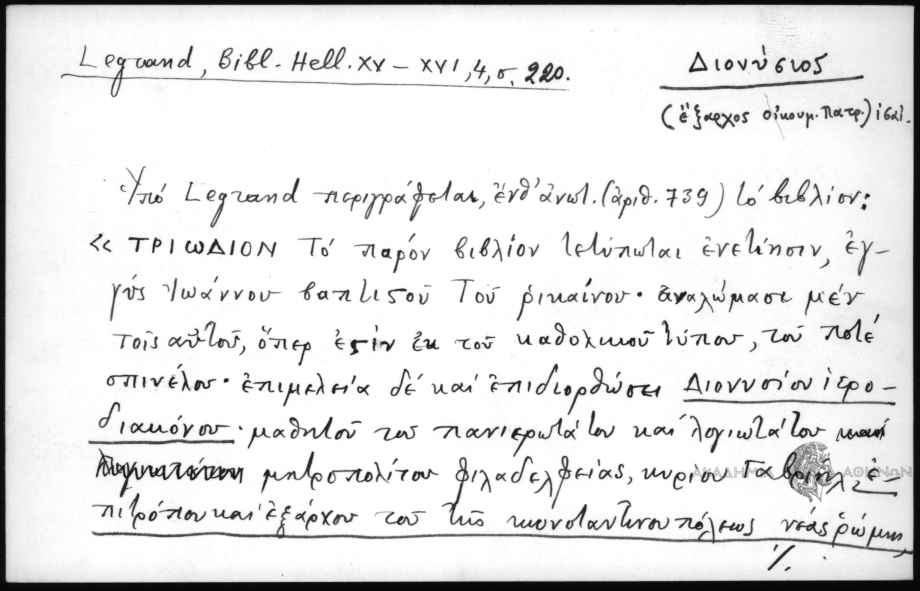 Legrand, Bibl. Hell. XV – XVI, 4, σ. 220.
Διονύσιος
(ἔξαρχος Οἰκουμ. Πατρ.)
Ὑπό Legrand περιγράφεται, ἔνθ' ἀνωτ. (ἀριθ. 739) τό βιβλίον:
« ΤΡΙΩΔΙΟΝ Τό παρόν βιβλίον τετύπωται ἐνετίησιν, ἐγ-
γύς Ἰωάννου βαπτιςοῦ Τοῦ ῥικαίνου· ἀναλώμασι μέν
τοῖς αὐτοῦ, ὅπερ ἐςίν ἐκ τοῦ καθολικοῦ τύπου, τοῦ ποτέ
σπινέλου· ἐπιμελεία δέ καί ἐπιδιορθώσει Διονυσίου ἱερο-
διακόνου· μαθητοῦ τοῦ πανιερωτάτου καί λογιωτάτου
μητροπολίτου φιλαδελφείας, κυρίου Γαβριήλ, ἐ-
πιτρόπου καί ἐξάρχου τοῦ τῆς κωνσταντινουπόλεως νέας ῥώμης,
·/.
ΑΚΑΔΗΜΙΑ ΑΘΗΝΩΝ